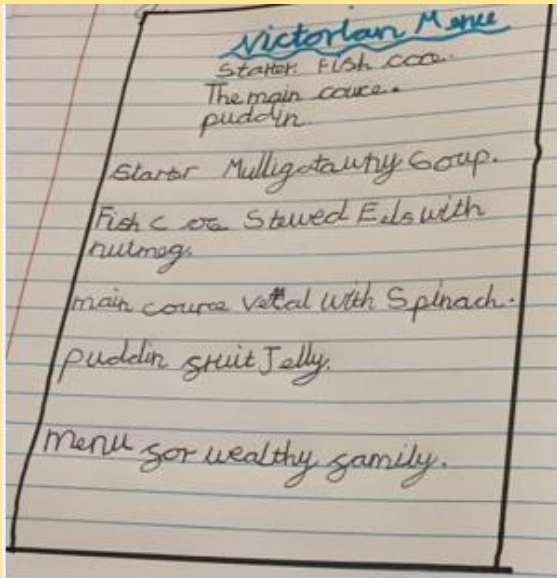 Victorian Menue
Starter. Fish coo..
The main cource.
puddin.
Starter Mulligatauny Soup.
Fish C oo Stewed Eels with
nutmeg.
main cource vetal with Spinach.
puddin fruit Jelly.
menu for wealthy family.